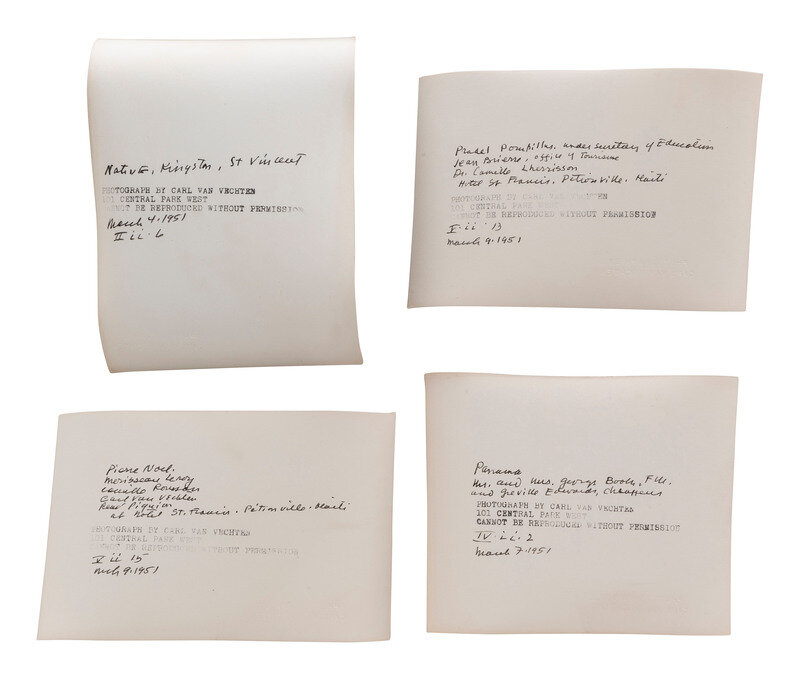 Native, Kingston, St Vincent
PHOTOGRAPH BY CARL VAN VECHTEN
101 CENTRAL PARK WEST
CANNOT BE REPRODUCED WITHOUT PERMISSION
March 4, 1951
II ii 6
Pradel Pompilus, undersecretary of Education
Jean Brierre, office of Tourisme
Dr. Camille Lherrisson
Hotel St Francis, Pétionville, Haiti
PHOTOGRAPH BY CARL VAN VECHTEN
101 CENTRAL PARK WEST
CANNOT BE REPRODUCED WITHOUT PERMISSION
V ii 13
March 9, 1951
Pierre Noel,
Morisseau Leroy
Camille Rousseau
Carl Van Vechten
René Piquion
at Hotel St. Francis, Pétionville, Haiti
PHOTOGRAPH BY CARL VAN VECHTEN
101 CENTRAL PARK WEST
CANNOT BE REPRODUCED WITHOUT PERMISSION
V ii 15
March 9, 1951
Panama
Mr. and Mrs. George Booth,
and Greville Edwards,
PHOTOGRAPH BY CARL VAN VECHTEN
101 CENTRAL PARK WEST
CANNOT BE REPRODUCED WITHOUT PERMISSION
IV ii 2
March 7, 1951